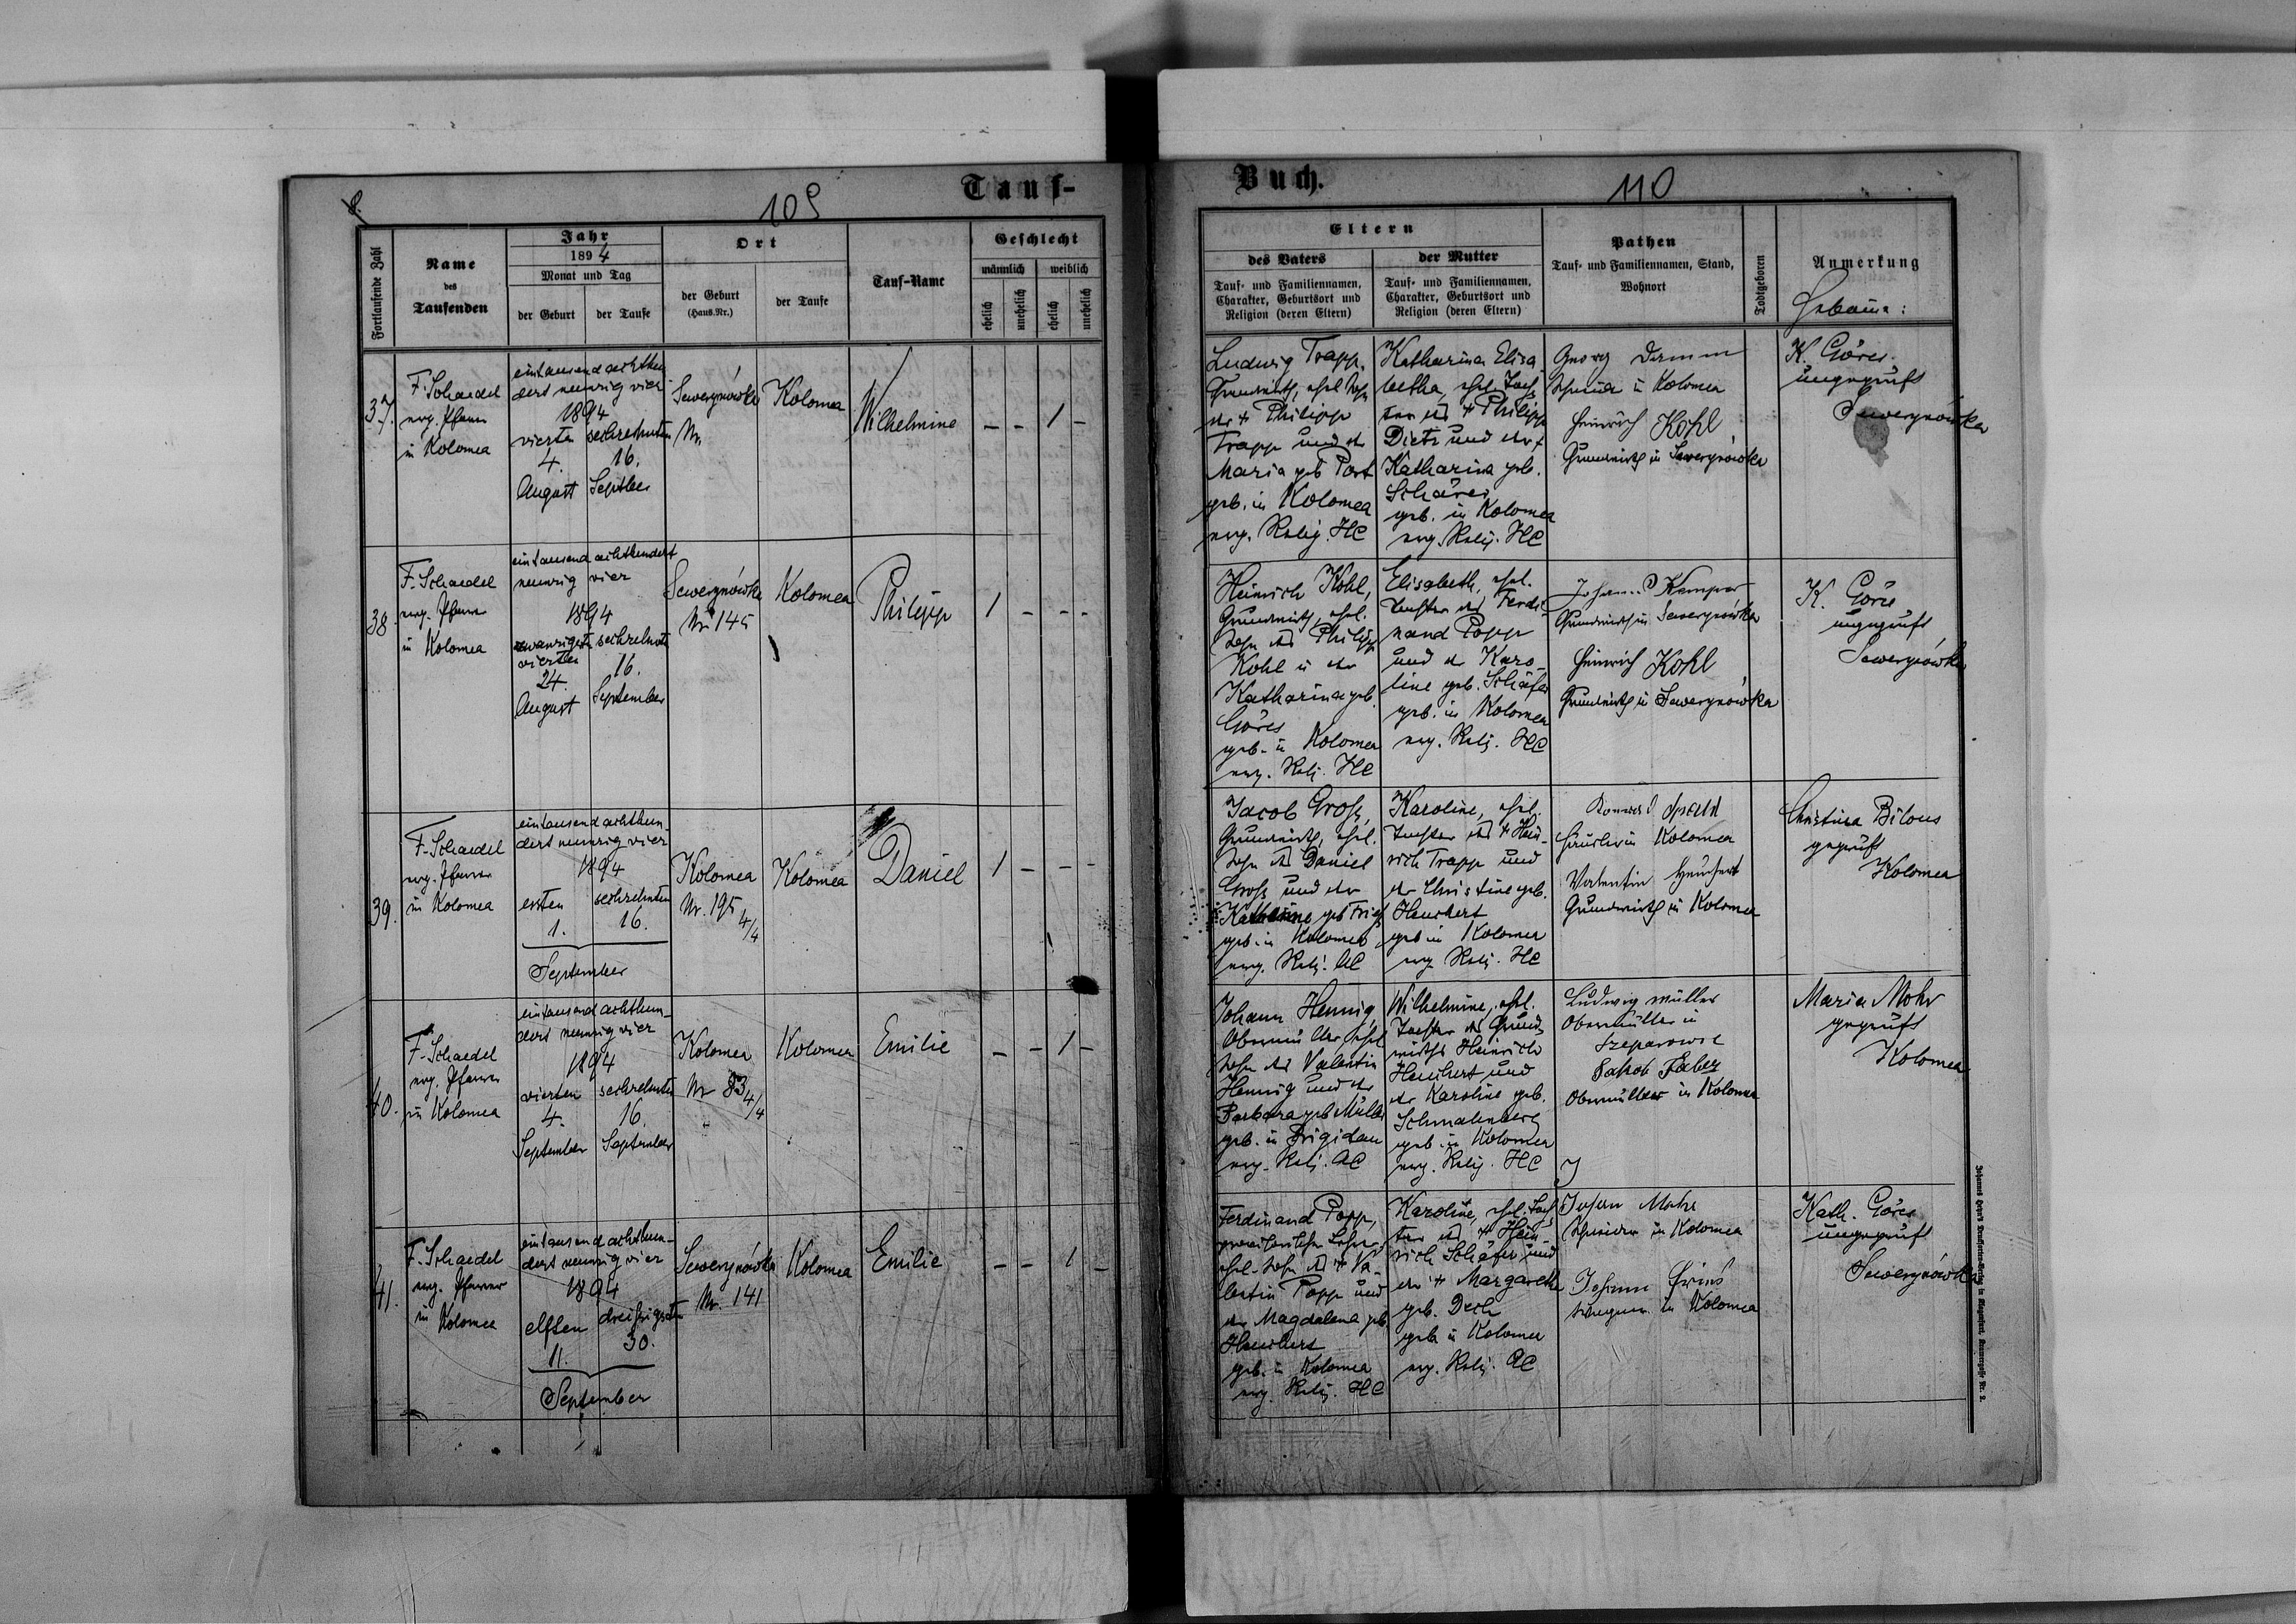 8.
109
Tauf-
Fortlaufende Zahl
Name
des
Taufenden
Jahr
1894
Monat und Tag
der Geburt
der Taufe
Ort
der Geburt
(Haus.Nr.)
der Taufe
Tauf-Name
Geschlecht
männlich
weiblich
ehelich
unehelich
ehelich
unehelich
37.
F. Schaedel
evg. Pfarrer
in Kolomea
eintausend achthun-
dert neunzig vier
1894
vierten
4.
August
sechzehnten
16.
Septber
Sewerynówka
Nr.
Kolomea
Wilhelmine
- - 1 -
38.
F. Schaedel
evg. Pfarrer
in Kolomea
eintausend achthundert
neunzig vier
1894
zwanzigst
vierten
24.
August
sechzehnten
16.
September
Sewerynówka
Nr 145
Kolomea
Philipp
1 - - -
39.
F. Schaedel
evg. Pfarrer
in Kolomea
eintausend achthun-
dert neunzig vier
1894
ersten
1.
sechzehnten
16.
September
Kolomea
Nr. 195 4/4
Kolomea
Daniel
1 - - -
40.
F. Schaedel
evg. Pfarrer
in Kolomea
eintausend achthun-
dert neunzig vier
1894
vierten
4.
September
sechzehnten
16.
September
Kolomea
Nr 83 4/4
Kolomea
Emilie
- - 1 -
41.
F. Schaedel
evg. Pfarrer
in Kolomea
eintausend achthun-
dert neunzig vier
1894
elften
11.
dreißigsten
30.
September
Sewerynówka
Nr. 141
Kolomea
Emilie
- - 1 -
Buch.
110
Eltern
des Vaters
Tauf- und Familiennamen,
Charakter, Geburtsort und
Religion (deren Eltern)
der Mutter
Tauf- und Familiennamen,
Charakter, Geburtsort und
Religion (deren Eltern)
Pathen
Tauf- und Familiennamen, Stand,
Wohnort
Todtgeboren
Anmerkung
Hebamme:
Ludwig Trapp,
Grundwirth, ehel. Sohn
des + Philipp
Trapp und der
Maria geb. Port
geb. in Kolomea
evg. Relig. HC
Katharina Elisa-
betha, ehel. Toch-
ter des + Philipp
Dietz und der +
Katharina geb.
Schärer
geb. in Kolomea
evg. Relig. HC
Georg Damm
in Kolomea
Heinrich Kohl
Grundwirth in Sewerynówka
K. Göres
ungeprüft
Sewerynówka
Heinrich Kohl,
Grundwirth, ehel.
Sohn des Philipp
Kohl u der
Katharina geb.
Göres
geb. in Kolomea
evg. Relg. HC
Elisabeth, ehel.
Tochter des Ferdi-
nand Popp
und der Karo-
line geb. Schäfer
geb. in Kolomea
evg. Relg. HC
Johann Kemper
Grundwirth in Sewerynówka
Heinrich Kohl
Grundwirth in Sewerynówka
K. Göres
ungeprüft
Sewerynówka
Jacob Groß,
Grundwirth, ehel.
Sohn des Daniel
Groß und der
Katharine geb.
geb. in Kolomea
evg. Relg. AC
Karoline, ehel.
Tochter des + Hein-
rich Trapp und
der Christine geb.
Heuchert
geb in Kolomea
evg Relg. HC
Konrad
in Kolomea
Valentin Heuchert
Grundwirth in Kolomea
Christina Bilous
geprüft
Kolomea
Johann Hennig,
Obermüller, ehel
Sohn des Valentin
Hennig und der
Barbara geb Müller
geb. in Brigidau
evg. Relg. AC
Wilhelmine, ehel.
Tochter des Grund-
wirths Heinrich
Heuchert und
der Karoline geb.
Schmalenberg
geb. in Kolomea
evg. Relig. HC
Ludwig Müller
Obermüller in
Szeparowce
Jakob Faber
Obermüller in Kolomea
Maria Mohr
geprüft
Kolomea
Ferdinand Popp,
ehel. Sohn des + Va-
lentin Popp und
der Magdalena geb.
Heuchert
geb. in Kolomea
evg. Relig. HC
Karoline, ehel. Toch-
ter des + Hein-
rich Schäfer und
der + Margareth
geb. Dech
geb. in Kolomea
evg. Relg. AC
Mohr
in Kolomea
Johann
in Kolomea
Kath. Göres
ungeprüft
Sewerynówka